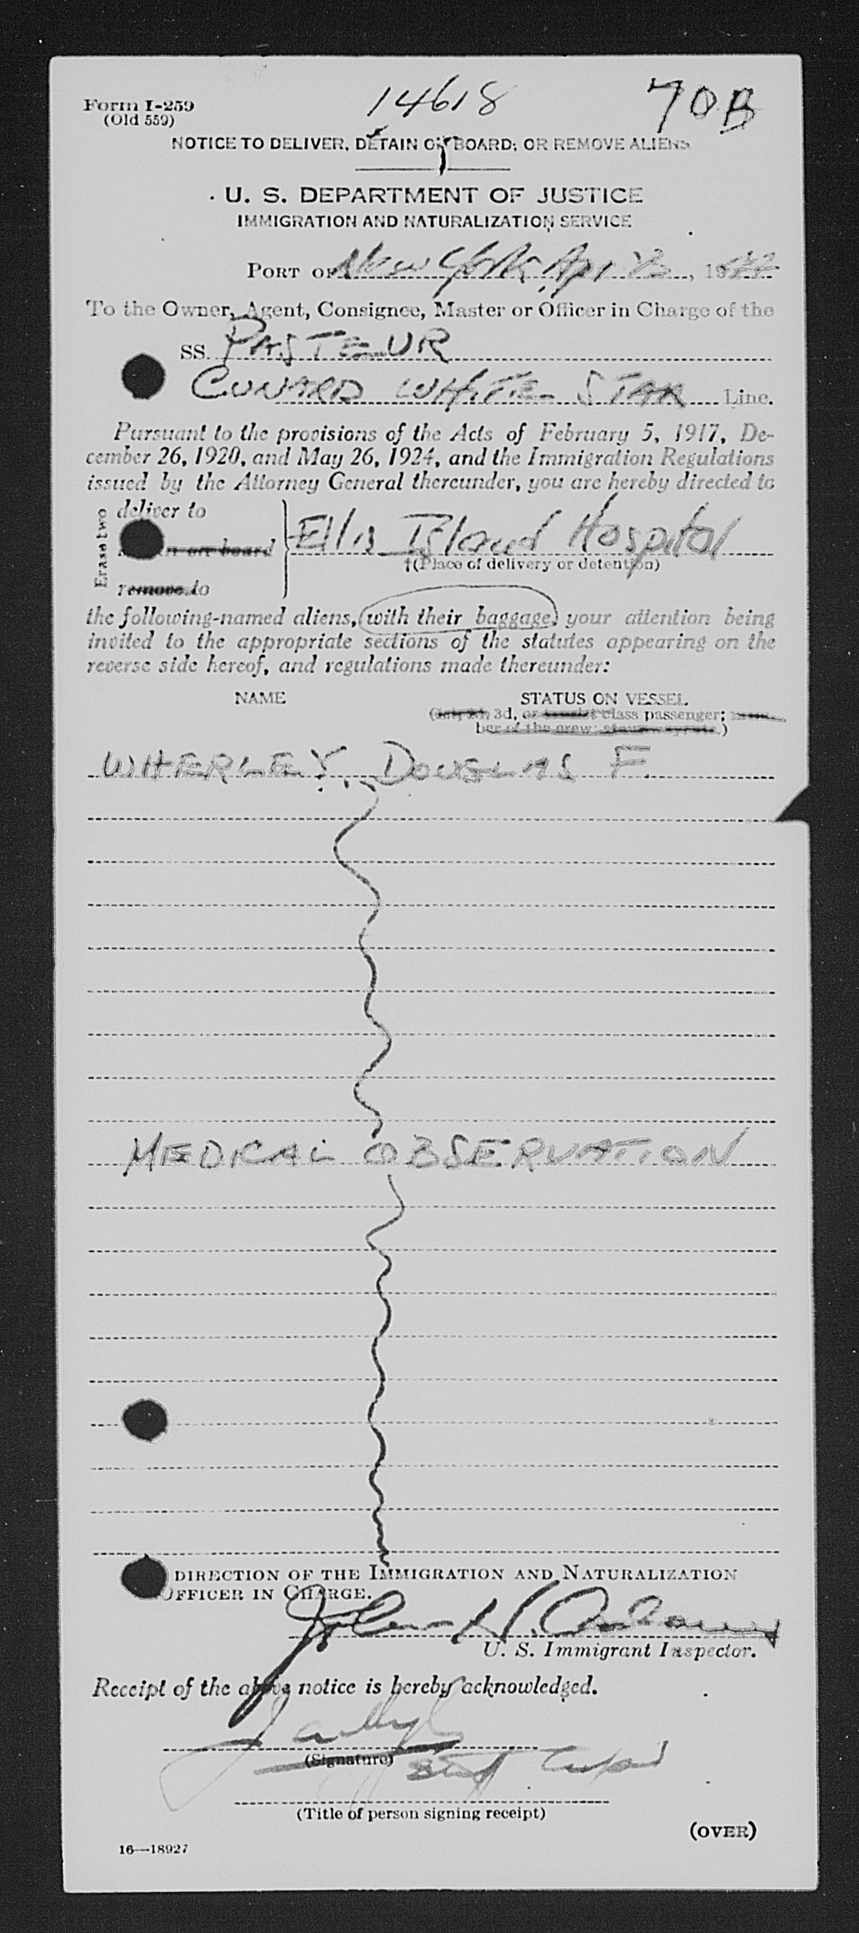 Form I-259
(Old 559)
14618
70B
NOTICE TO DELIVER, DETAIN ON BOARD, OR REMOVE ALIENS
U. S. DEPARTMENT OF JUSTICE
IMMIGRATION AND NATURALIZATION SERVICE
PORT OF New York, Apr , 19
To the Owner, Agent, Consignee, Master or Officer in Charge of the
SS. PASTEUR
CUNARD WHITE STAR Line.
Pursuant to the provisions of the Acts of February 5, 1917, De-
cember 26, 1920, and May 26, 1924, and the Immigration Regulations
issued by the Attorney General thereunder, you are hereby directed to
Erase two
deliver to
on board
remove to
Ellis Island Hospital
†(Place of delivery or detention)
the following-named aliens, with their baggage, your attention being
invited to the appropriate sections of the statutes appearing on the
reverse side hereof, and regulations made thereunder:
NAME
STATUS ON VESSEL
3d, or class passenger;
ber of the crew;
WHERLEY, DOUGLAS F.
MEDICAL OBSERVATION
DIRECTION OF THE IMMIGRATION AND NATURALIZATION
OFFICER IN CHARGE.
John H.
U. S. Immigrant Inspector.
Receipt of the above notice is hereby acknowledged.
(Signature)
(Title of person signing receipt)
(OVER)
16—18927